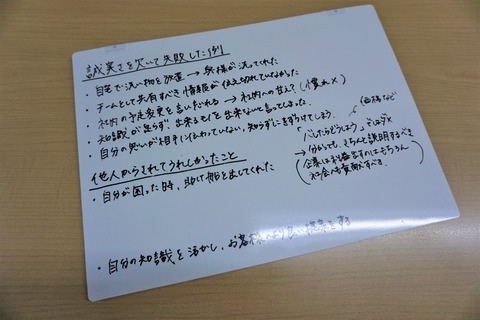 誠実さを欠いて失敗した例
・自宅で洗い物を放置 → 奥様が洗ってくれた
・チームとして共有すべき情報が伝え切れていなかった
・社内の予定変更を言いそびれる → 社内への甘え？（慣れ×）
・知識が足らず、出来るモノを出来ないと言ってしまった。
・自分の思いが相手に伝わっていない、知らずにきずつけてしまう。
価格など
「しらたらどうしよう」ではダメ
→ 分からでも、きちんと説明するべき
（企業は利益出すのはもちろん
社会へも貢献すべき。
他人からされてうれしかったこと
・自分が困った時、助け船を出してくれた
・自分の知識を活かし、お客様